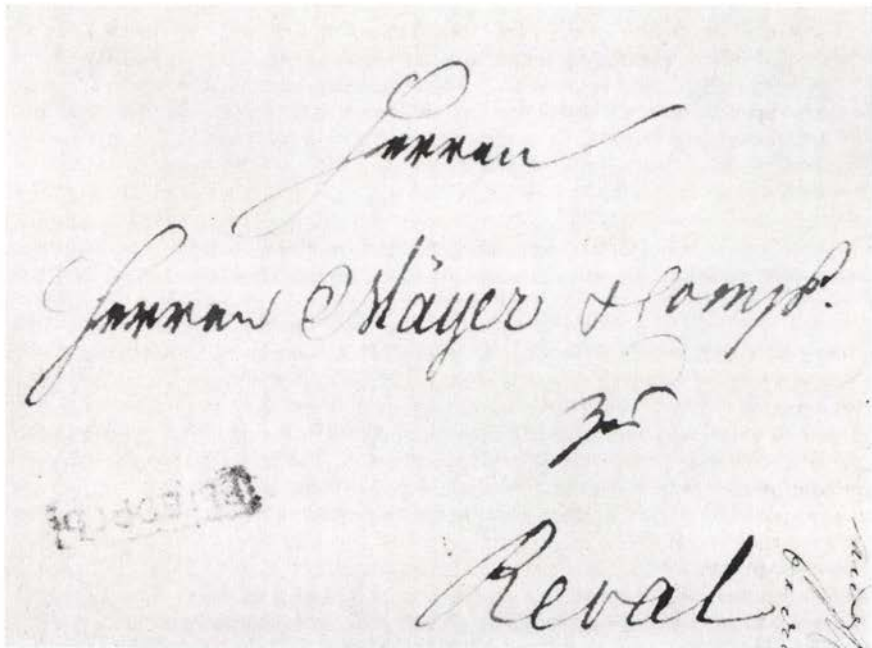 Herren
Herren Mayer & Comp.
zu
Reval